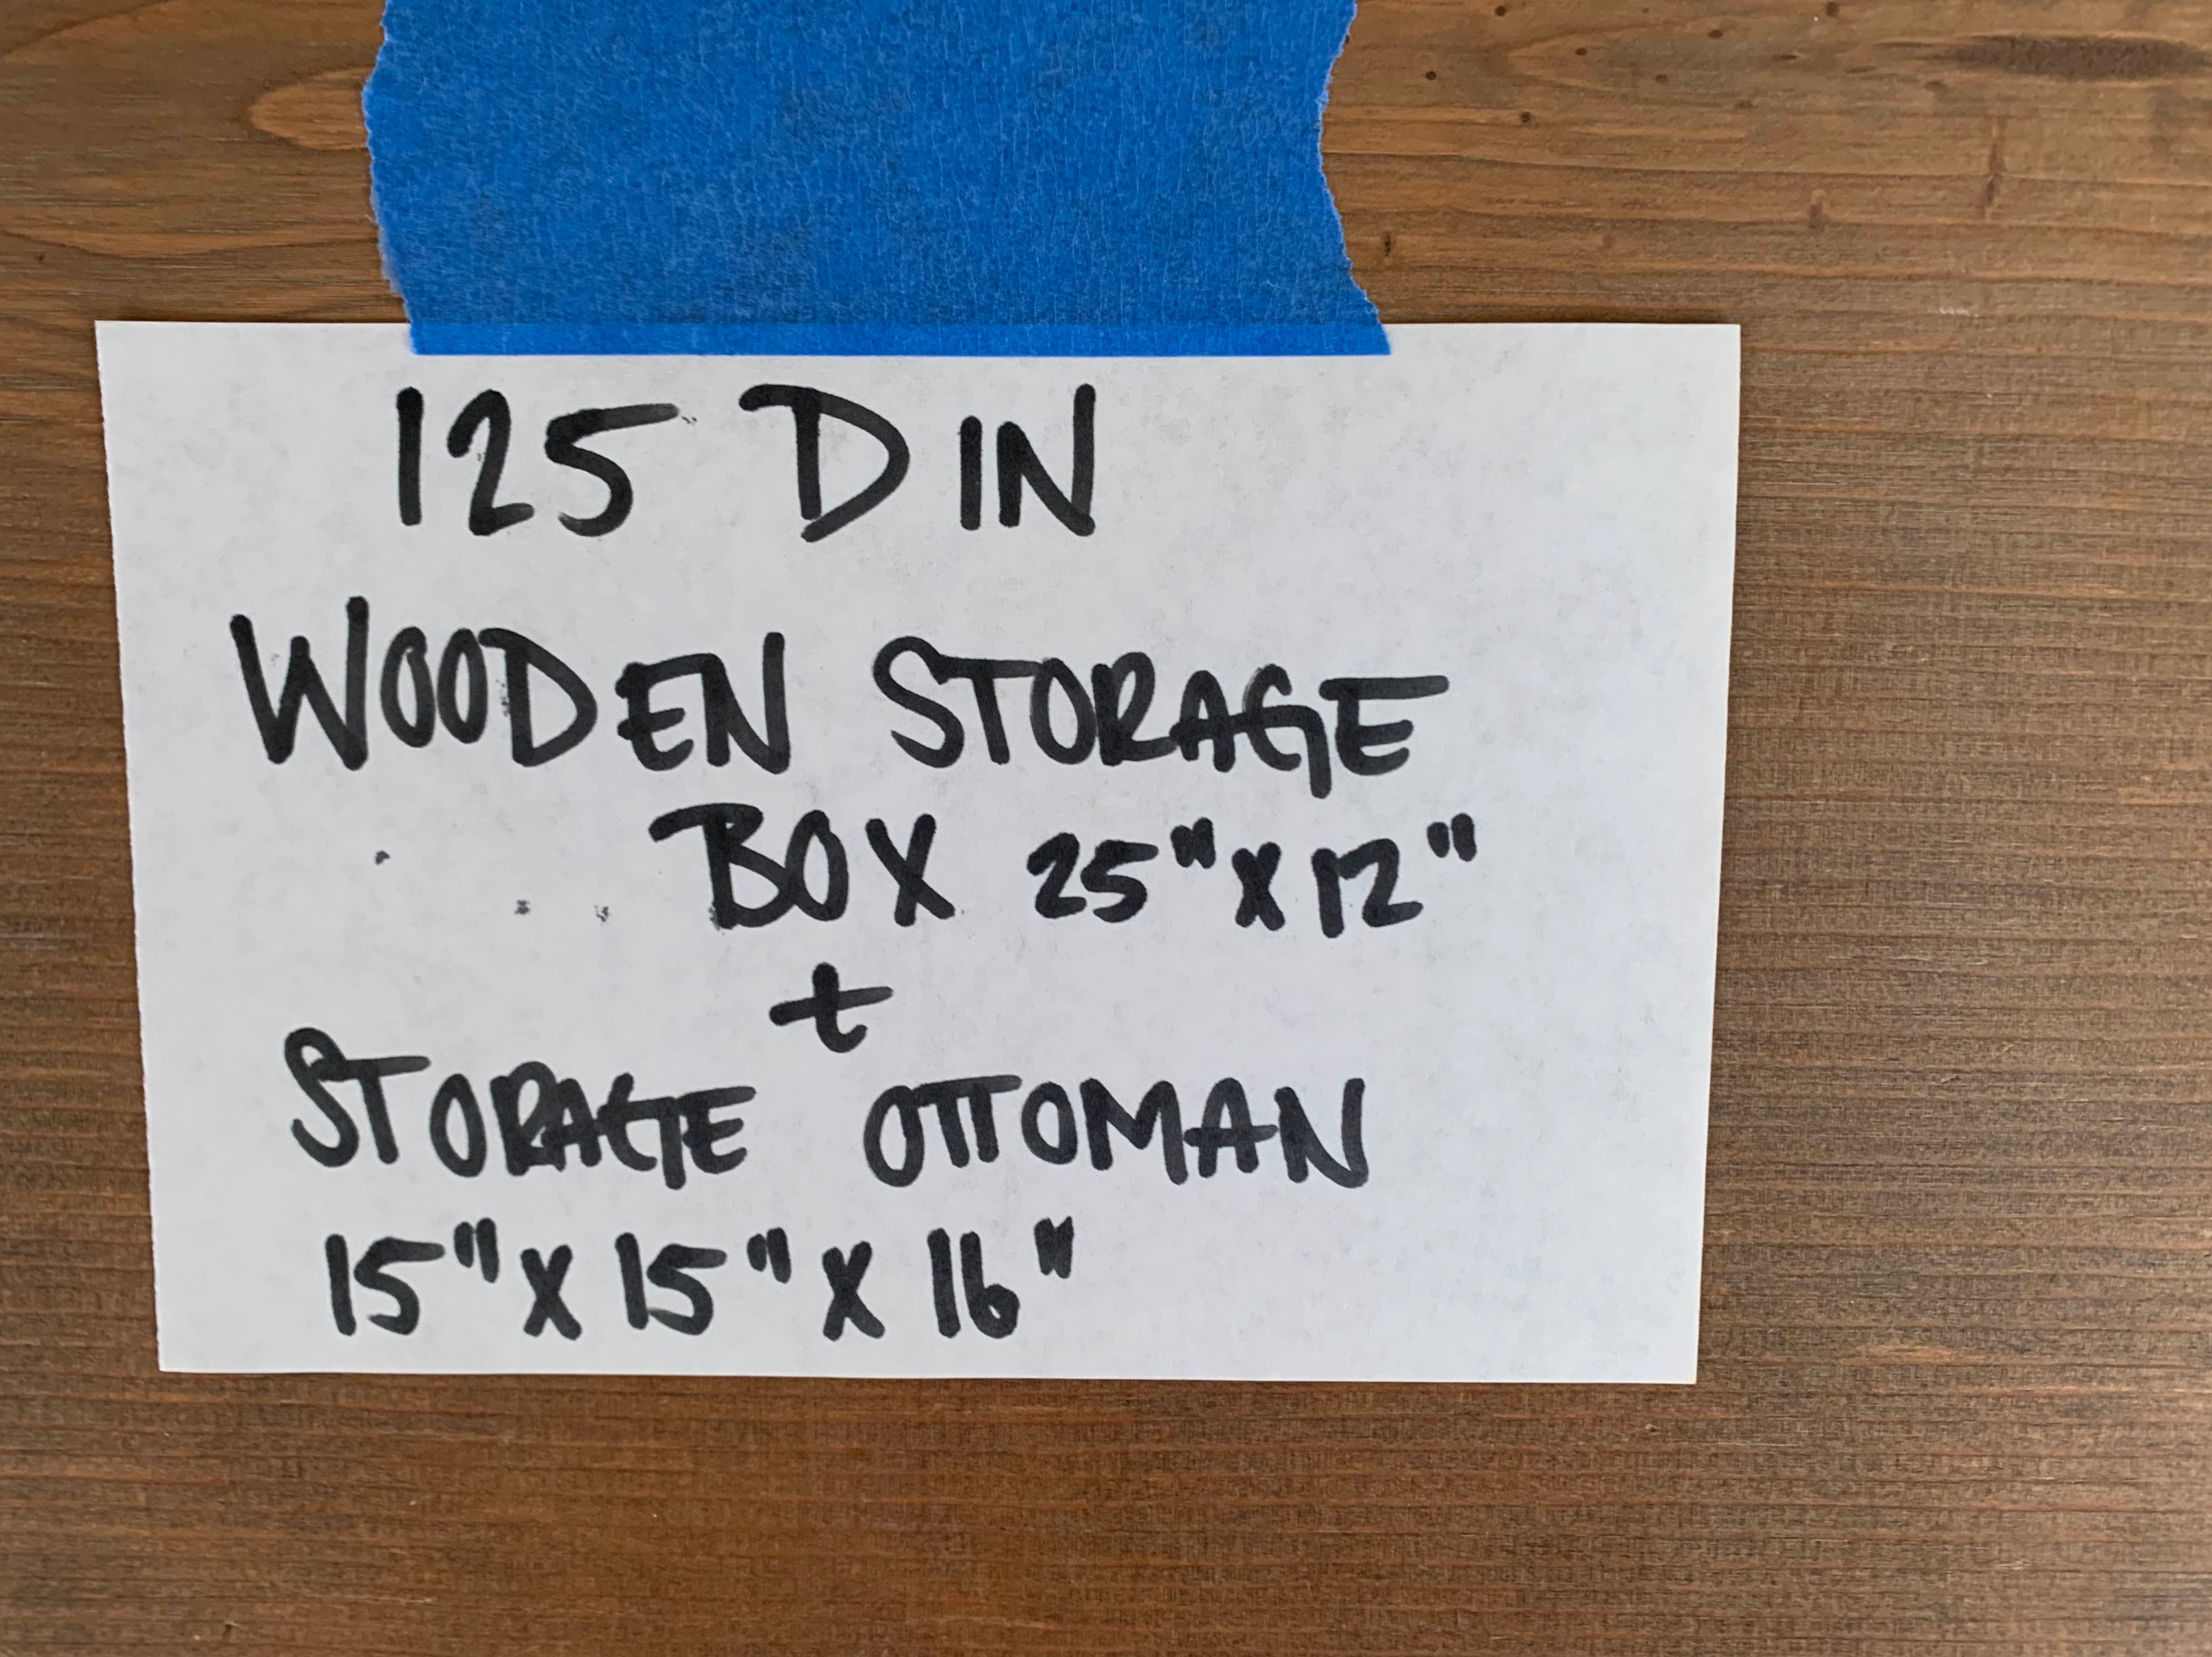 125 DIN
WOODEN STORAGE
BOX 25" X 12"
+
STORAGE OTTOMAN
15" X 15" X 16"